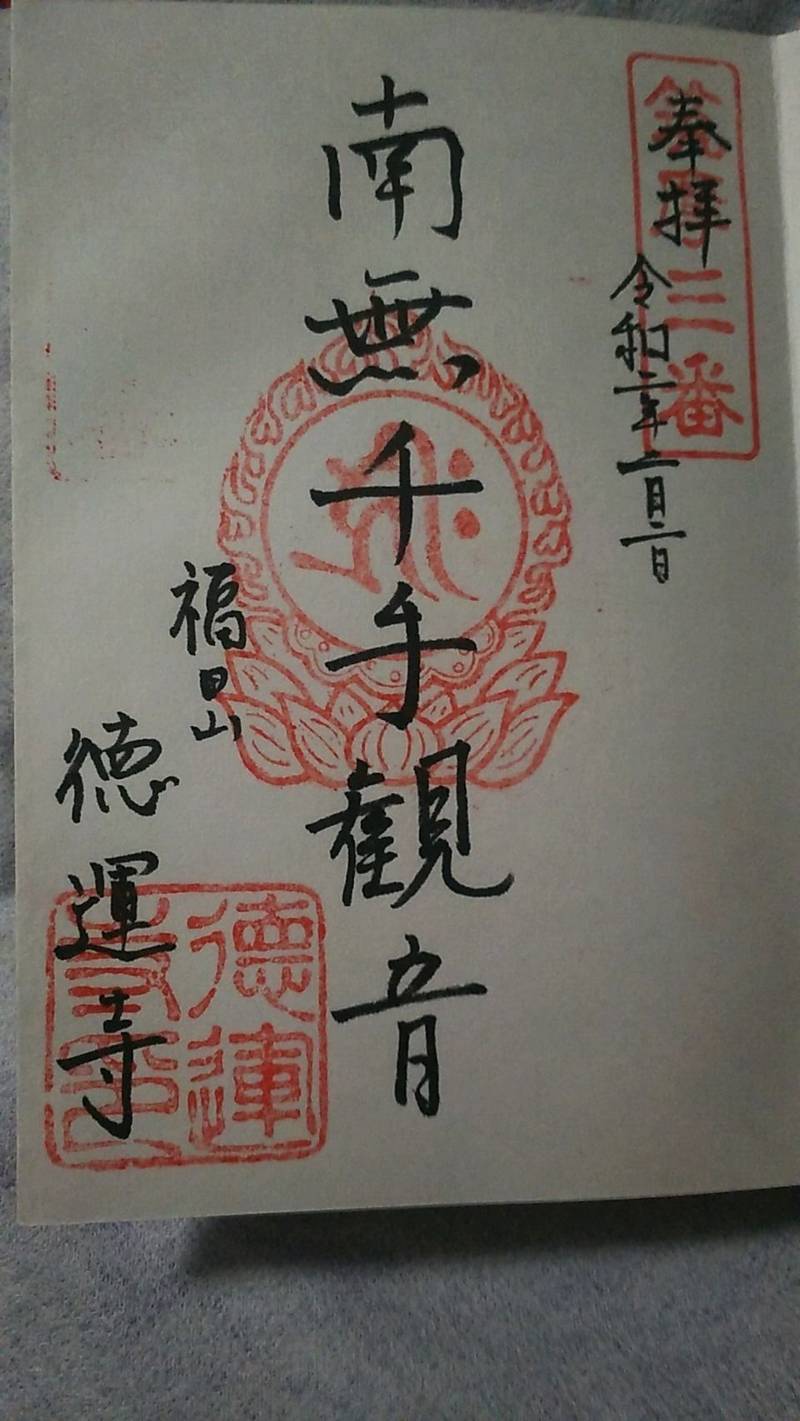 奉拝
三番
令和二年二月二日
南無千手觀音
福日山
徳運寺
徳運寺印